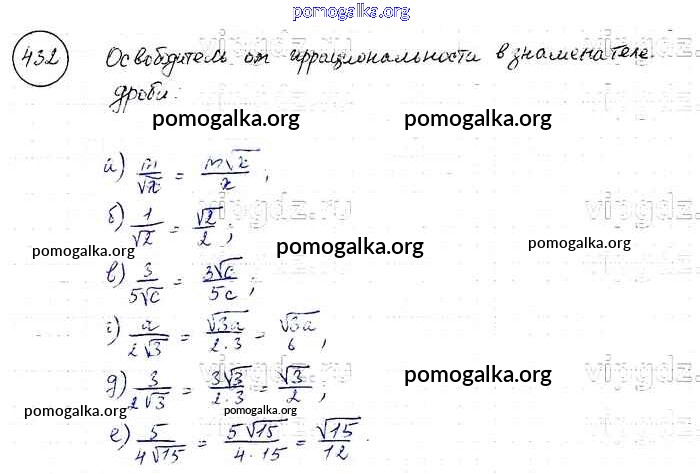 pomogalka.org
432 Освободитель от иррациональности в знаменателе
дроби:
pomogalka.org pomogalka.org
а) m/√x = m√x/x;
vipgdz.ru vipgdz.ru
б) 1/√2 = √2/2;
pomogalka.org pomogalka.org pomogalka.org
в) 3/5√c = 3√c/5c;
г) a/2√3 = √3a/2·3 = √3a/6,
д) 3/2√3 = 3√3/2·3 = √3/2,
pomogalka.org
pomogalka.org pomogalka.org pomogalka.org
е) 5/4√15 = 5√15/4·15 = √15/12.
vipgdz.ru vipgdz.ru